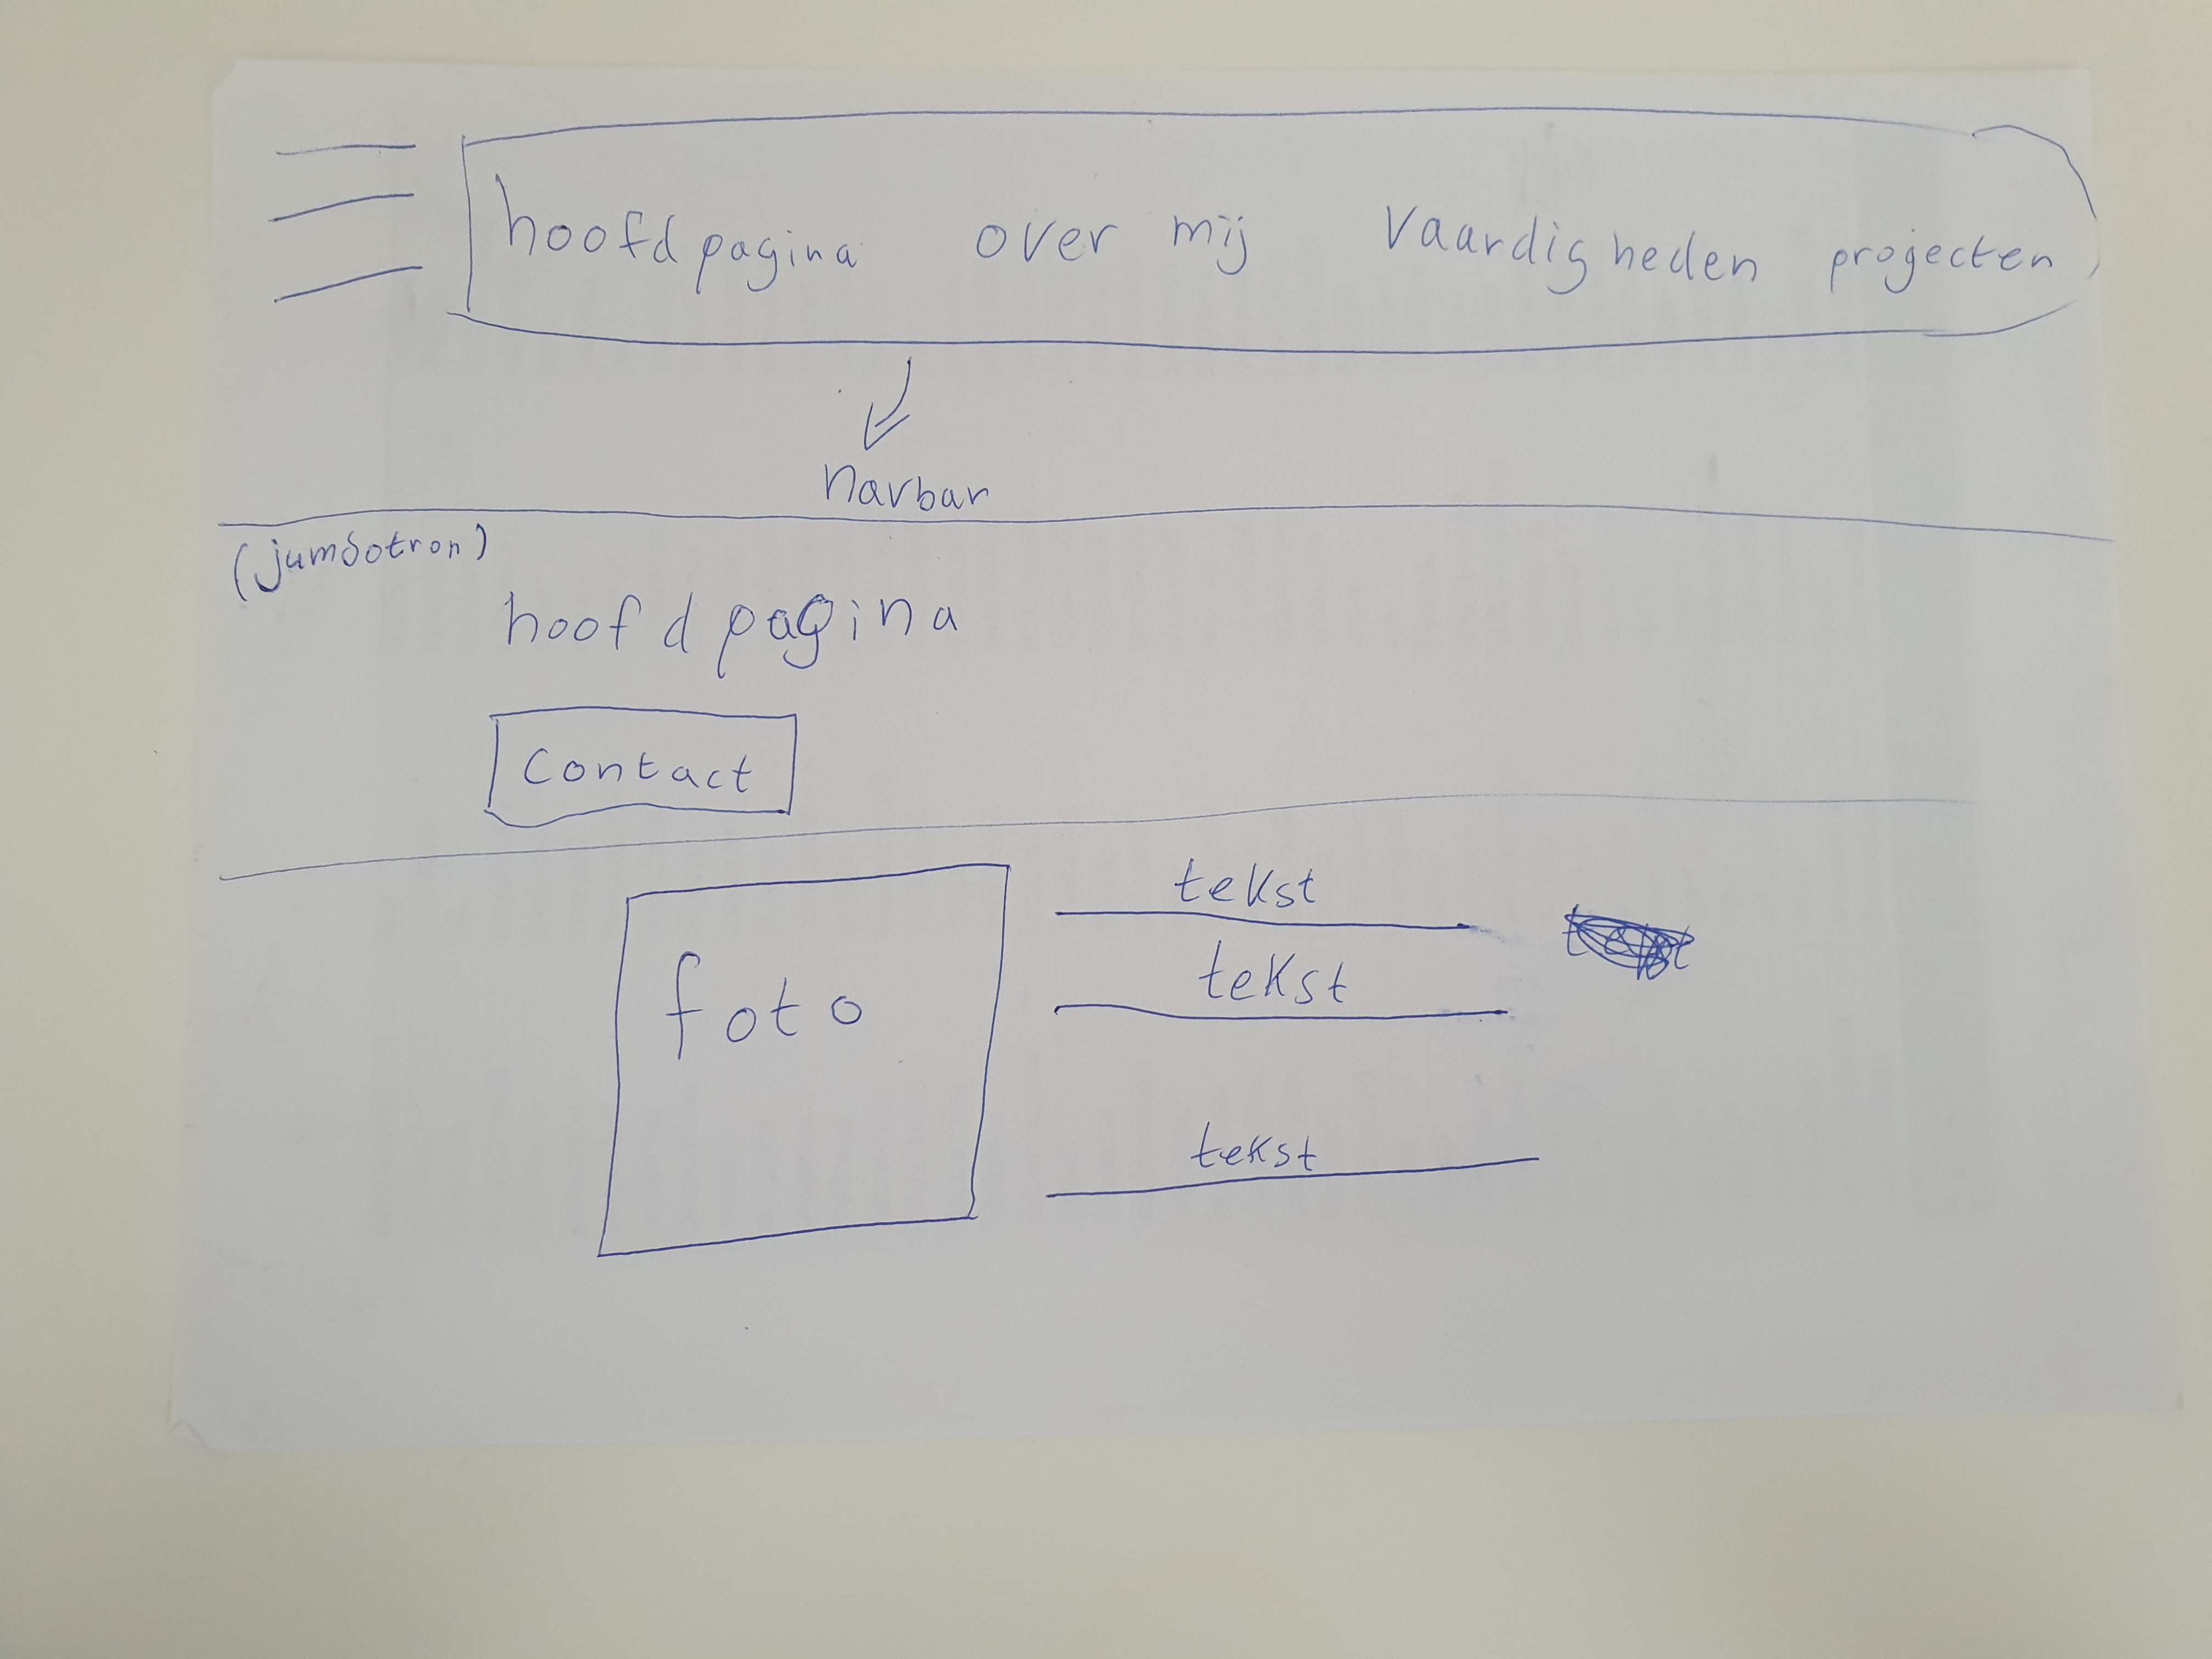 hoofdpagina over mij Vaardigheden projecten
Navbar
(jumbotron)
hoofdpagina
Contact
foto
tekst
tekst
tekst